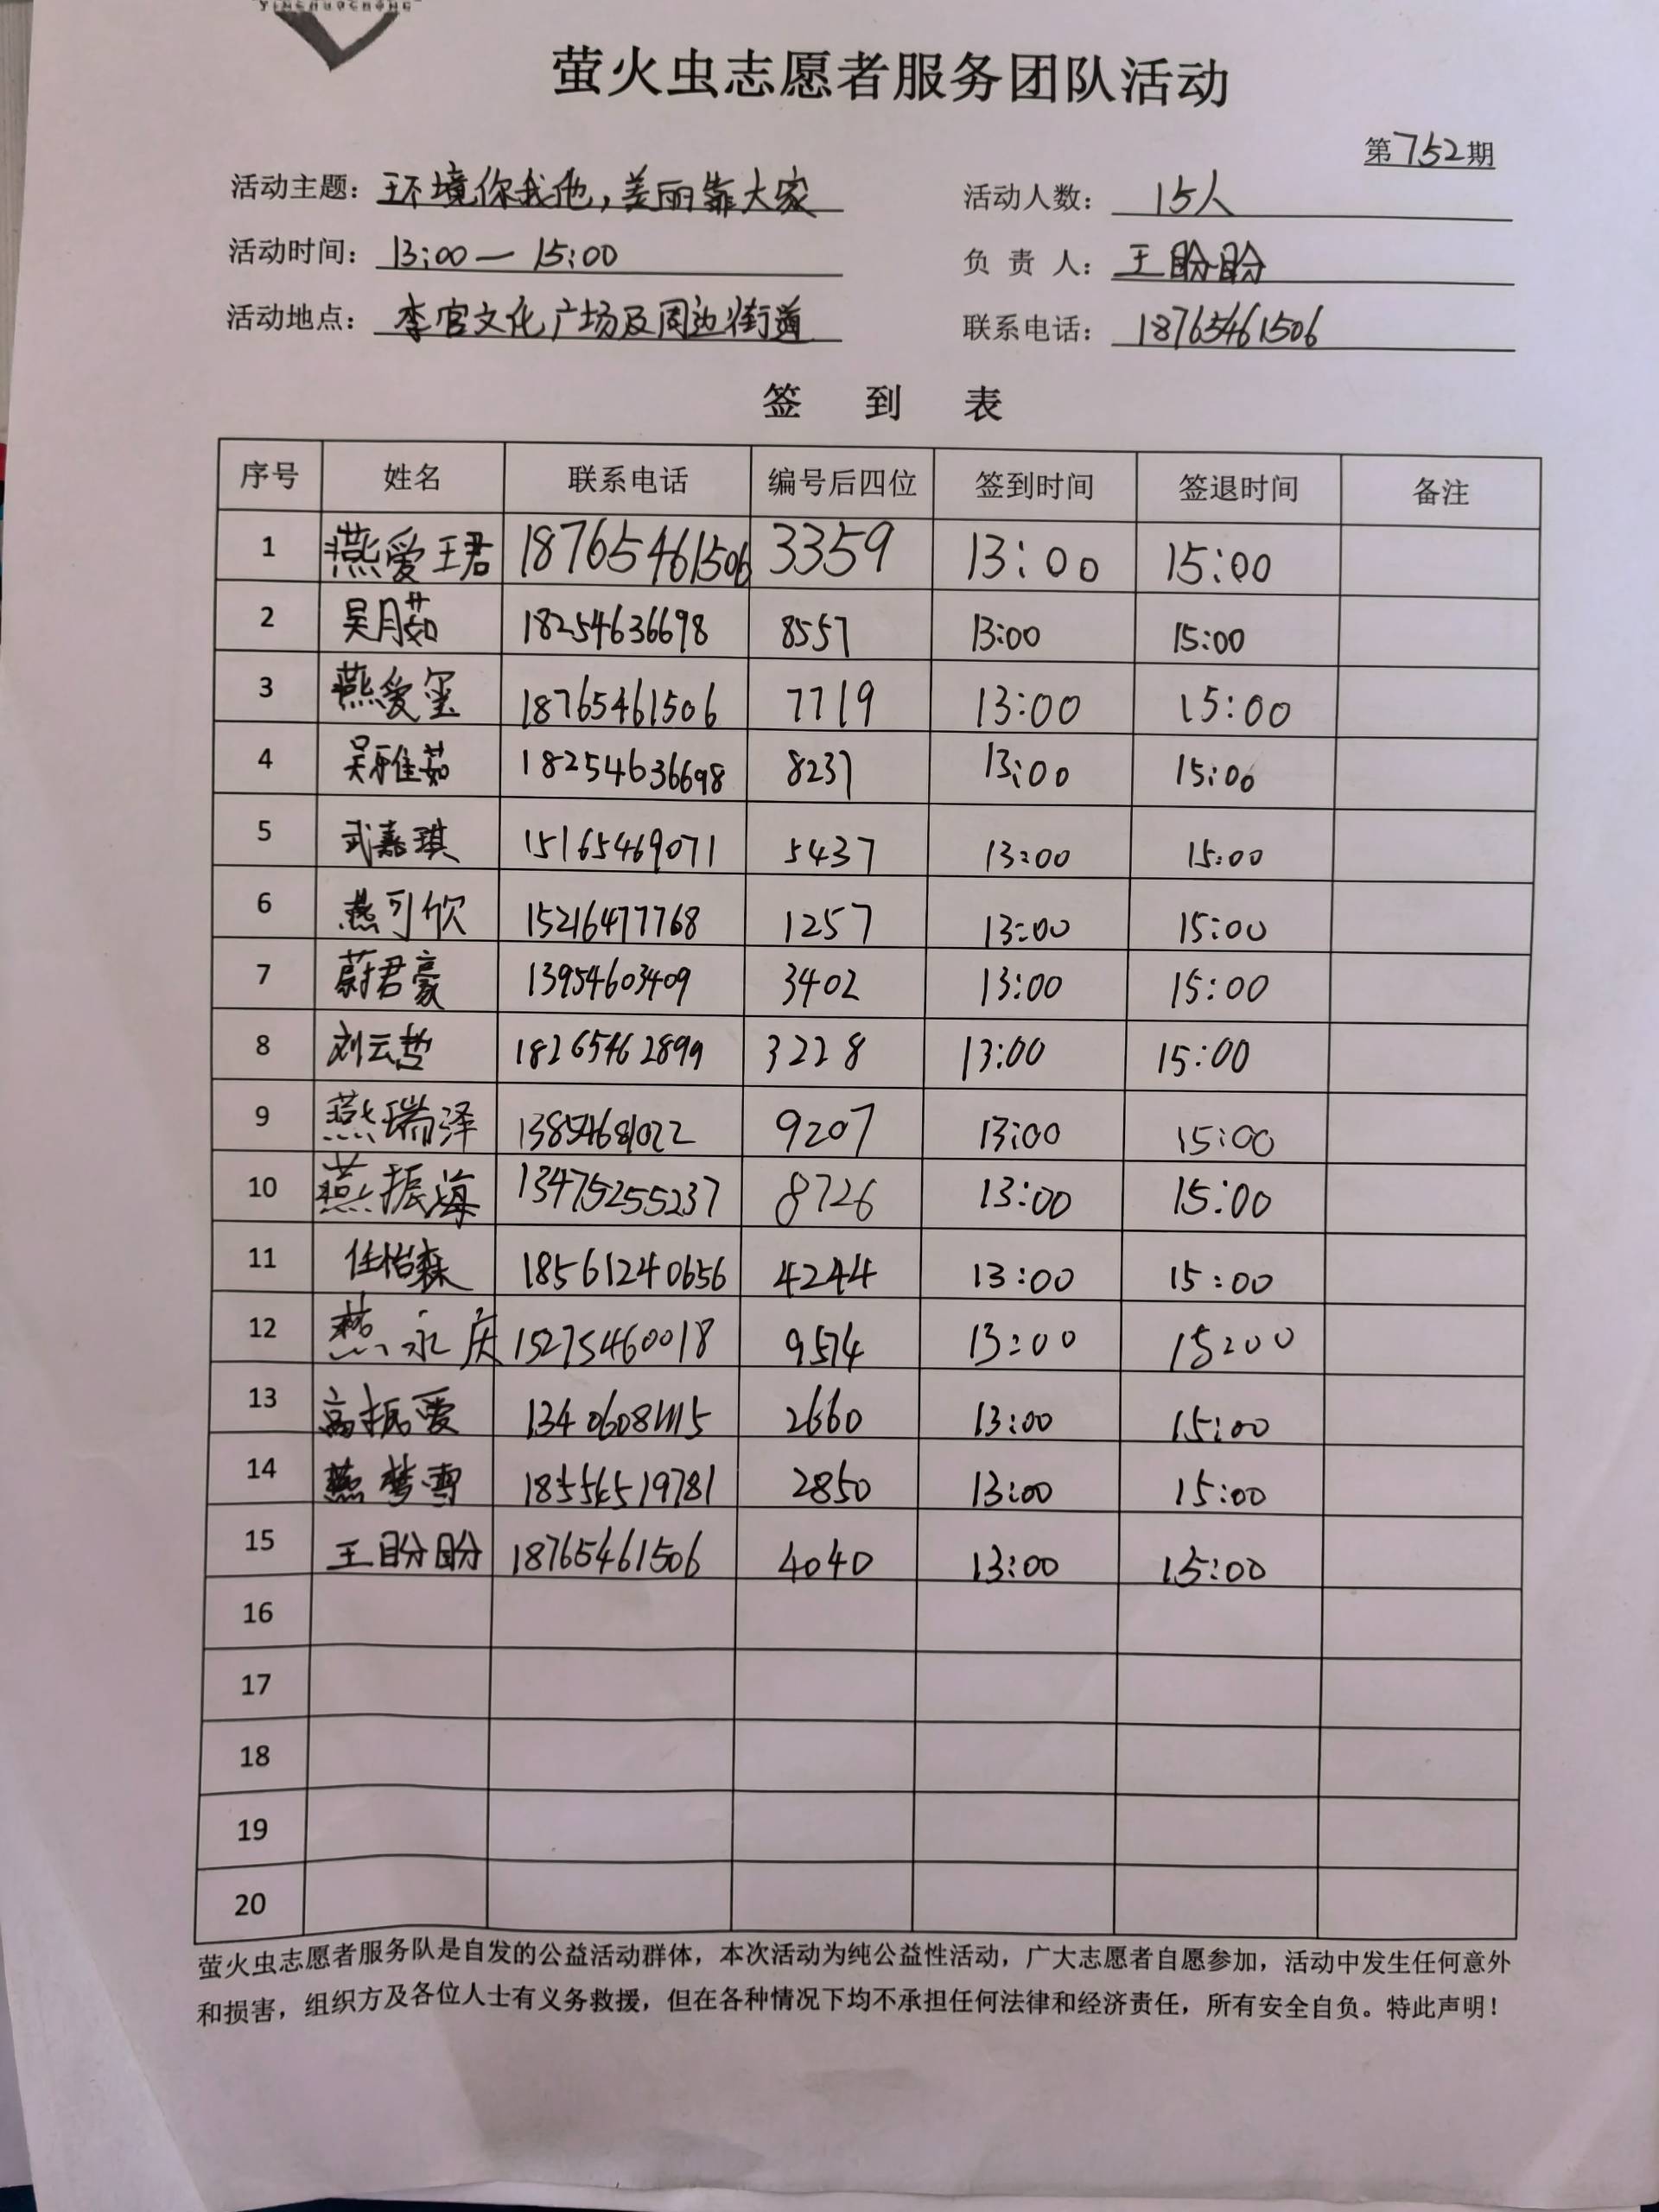 YINGHUOCHONG
萤火虫志愿者服务团队活动
第752期
活动主题：环境你我他，美丽靠大家 活动人数：15人
活动时间：13:00—15:00 负责人：王盼盼
活动地点：李官文化广场及周边街道 联系电话：18765461506
签到表
序号 姓名 联系电话 编号后四位 签到时间 签退时间 备注
1 燕爱珺 18765461506 3359 13:00 15:00
2 吴月茹 18254636698 8557 13:00 15:00
3 燕爱玺 18765461506 7719 13:00 15:00
4 吴雅茹 18254636698 8237 13:00 15:00
5 武嘉琪 15165469071 5437 13:00 15:00
6 燕可欣 15216477768 1257 13:00 15:00
7 蔚君豪 13954603409 3402 13:00 15:00
8 刘云哲 18265462899 3228 13:00 15:00
9 燕瑞泽 9207 13:00 15:00
10 燕振海 13475255237 8726 13:00 15:00
11 任怡霖 18561240656 4244 13:00 15:00
12 燕永庆 15275460018 9574 13:00 15:00
13 高振爱 2660 13:00 15:00
14 燕梦雪 2850 13:00 15:00
15 王盼盼 18765461506 4040 13:00 15:00
16
17
18
19
20
萤火虫志愿者服务队是自发的公益活动群体，本次活动为纯公益性活动，广大志愿者自愿参加，活动中发生任何意外
和损害，组织方及各位人士有义务救援，但在各种情况下均不承担任何法律和经济责任，所有安全自负。特此声明！